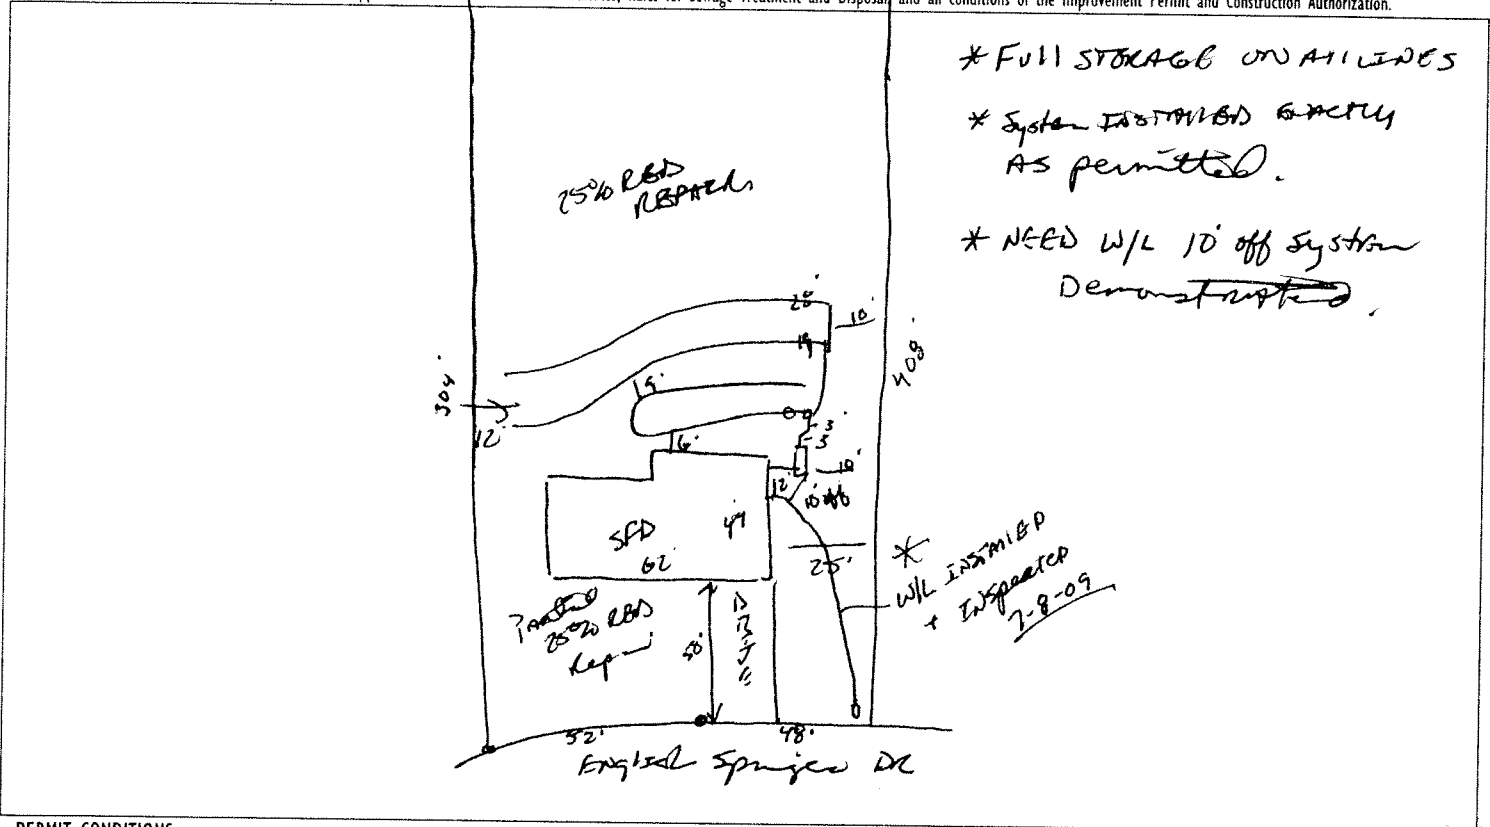 Rules for Sewage Treatment and Disposal, and all conditions of the Improvement Permit and Construction Authorization.
* FUll STORAGE ON All LINES
* System INSTALLED EXACTLY
AS permitted.
* NEED W/L 10' off System
Demonstrated.
25% RED
REPAIR
20'
10'
19'
408'
304'
19'
12'
3'
3'
6'
10'
12'
10' off
SFD
49'
62'
25'
*
W/L INSTALLED
+ INSpected
7-8-09
25% RED
Repair
50'
DRIVE
52'
48'
ENglish Springer DR
PERMIT CONDITIONS